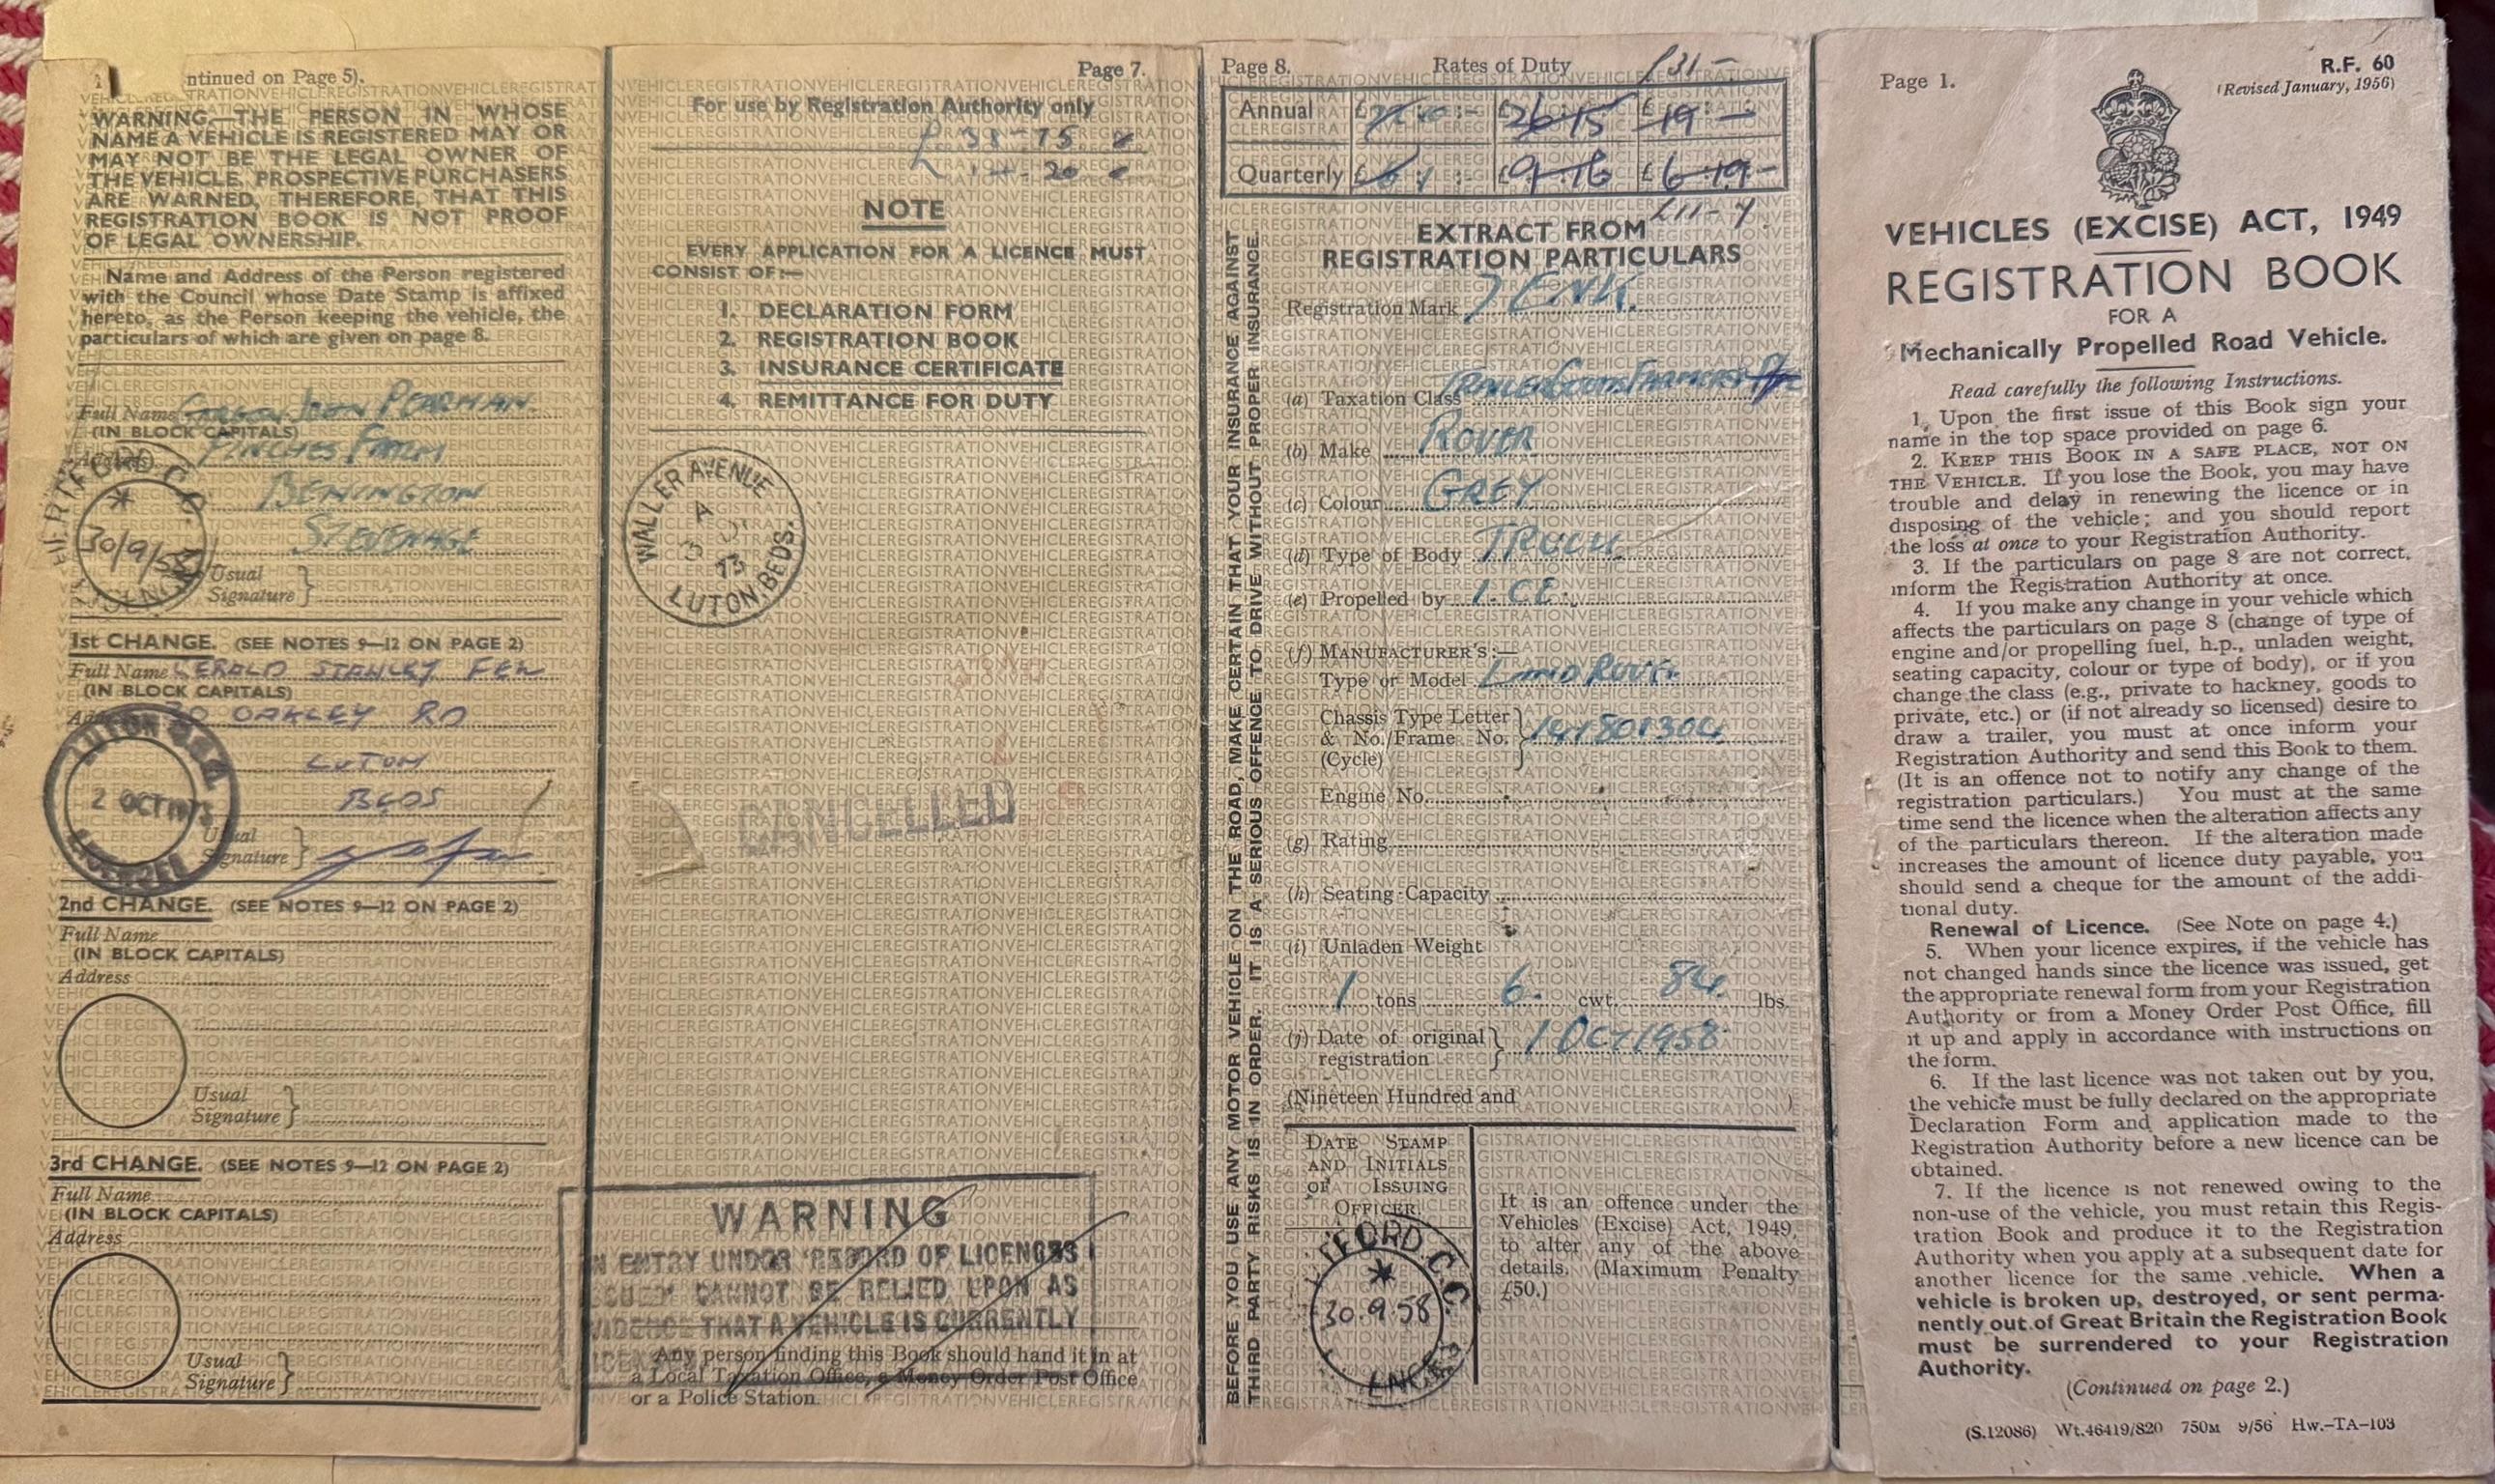 ntinued on Page 5).
WARNING.—THE PERSON IN WHOSE
NAME A VEHICLE IS REGISTERED MAY OR
MAY NOT BE THE LEGAL OWNER OF
THE VEHICLE. PROSPECTIVE PURCHASERS
ARE WARNED, THEREFORE, THAT THIS
REGISTRATION BOOK IS NOT PROOF
OF LEGAL OWNERSHIP.
Name and Address of the Person registered
with the Council whose Date Stamp is affixed
hereto, as the Person keeping the vehicle, the
particulars of which are given on page 8.
Full Name GORDON JOHN PEARMAN
(IN BLOCK CAPITALS)
Address FINCHES FARM
BENINGTON
STEVENAGE
HERTFORD C.C.
30/9/58
Usual
Signature
1st CHANGE. (SEE NOTES 9—12 ON PAGE 2)
Full Name GERALD STANLEY FEW
(IN BLOCK CAPITALS)
30 OAKLEY RD
LUTON
BEDS
LUTON
2 OCT 1973
Usual
Signature
2nd CHANGE. (SEE NOTES 9—12 ON PAGE 2)
Full Name
(IN BLOCK CAPITALS)
Address
Usual
Signature
3rd CHANGE. (SEE NOTES 9—12 ON PAGE 2)
Full Name
(IN BLOCK CAPITALS)
Address
Usual
Signature
Page 7.
For use by Registration Authority only
NOTE
EVERY APPLICATION FOR A LICENCE MUST
CONSIST OF:—
1. DECLARATION FORM
2. REGISTRATION BOOK
3. INSURANCE CERTIFICATE
4. REMITTANCE FOR DUTY
WALLER AVENUE
73
LUTON, BEDS.
CANCELLED
WARNING
N ENTRY UNDER 'RECORD OF LICENCES
CANNOT BE RELIED UPON AS
THAT A VEHICLE IS CURRENTLY
Any person finding this Book should hand it in at
a Local Taxation Office, a Money Order Post Office
or a Police Station.
Page 8. Rates of Duty £31-
Annual £ £26 15 £19 : -
Quarterly £ £9 16 £6-19-
£11-7
EXTRACT FROM
REGISTRATION PARTICULARS
Registration Mark 7 ENK.
(a) Taxation Class
(b) Make ROVER
(c) Colour GREY
(d) Type of Body TRUCK
(e) Propelled by I.C.E.
(f) MANUFACTURER'S:—
Type or Model LAND ROVER
Chassis Type Letter
& No./Frame No. 141801304
(Cycle)
Engine No.
(g) Rating
(h) Seating Capacity
(i) Unladen Weight
1 tons 6. cwt. 84 lbs.
(j) Date of original
registration 1 OCT 1958
(Nineteen Hundred and )
DATE STAMP
AND INITIALS
OF ISSUING
OFFICER.
30.9.58
It is an offence under the
Vehicles (Excise) Act, 1949,
to alter any of the above
details. (Maximum Penalty
£50.)
BEFORE YOU USE ANY MOTOR VEHICLE ON THE ROAD, MAKE CERTAIN THAT YOUR INSURANCE AGAINST
THIRD PARTY RISKS IS IN ORDER. IT IS A SERIOUS OFFENCE TO DRIVE WITHOUT PROPER INSURANCE.
Page 1.
R.F. 60
(Revised January, 1956)
VEHICLES (EXCISE) ACT, 1949
REGISTRATION BOOK
FOR A
Mechanically Propelled Road Vehicle.
Read carefully the following Instructions.
1. Upon the first issue of this Book sign your
name in the top space provided on page 6.
2. KEEP THIS BOOK IN A SAFE PLACE, NOT ON
THE VEHICLE. If you lose the Book, you may have
trouble and delay in renewing the licence or in
disposing of the vehicle; and you should report
the loss at once to your Registration Authority.
3. If the particulars on page 8 are not correct,
inform the Registration Authority at once.
4. If you make any change in your vehicle which
affects the particulars on page 8 (change of type of
engine and/or propelling fuel, h.p., unladen weight,
seating capacity, colour or type of body), or if you
change the class (e.g., private to hackney, goods to
private, etc.) or (if not already so licensed) desire to
draw a trailer, you must at once inform your
Registration Authority and send this Book to them.
(It is an offence not to notify any change of the
registration particulars.) You must at the same
time send the licence when the alteration affects any
of the particulars thereon. If the alteration made
increases the amount of licence duty payable, you
should send a cheque for the amount of the addi-
tional duty.
Renewal of Licence. (See Note on page 4.)
5. When your licence expires, if the vehicle has
not changed hands since the licence was issued, get
the appropriate renewal form from your Registration
Authority or from a Money Order Post Office, fill
it up and apply in accordance with instructions on
the form.
6. If the last licence was not taken out by you,
the vehicle must be fully declared on the appropriate
Declaration Form and application made to the
Registration Authority before a new licence can be
obtained.
7. If the licence is not renewed owing to the
non-use of the vehicle, you must retain this Regis-
tration Book and produce it to the Registration
Authority when you apply at a subsequent date for
another licence for the same vehicle. When a
vehicle is broken up, destroyed, or sent perma-
nently out of Great Britain the Registration Book
must be surrendered to your Registration
Authority.
(Continued on page 2.)
(S.12086) Wt.46419/820 750M 9/56 Hw.-TA-103